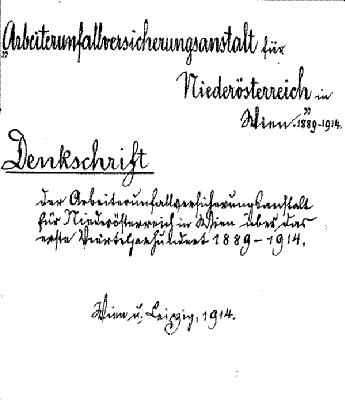 „Arbeiterunfallversicherungsanstalt für
Niederösterreich in
Wien." 1889-1914.
Denkschrift
der Arbeiterunfallversicherungsanstalt
für Niederösterreich in Wien über das
erste Vierteljahrhundert 1889-1914.
Wien u. Leipzig, 1914.